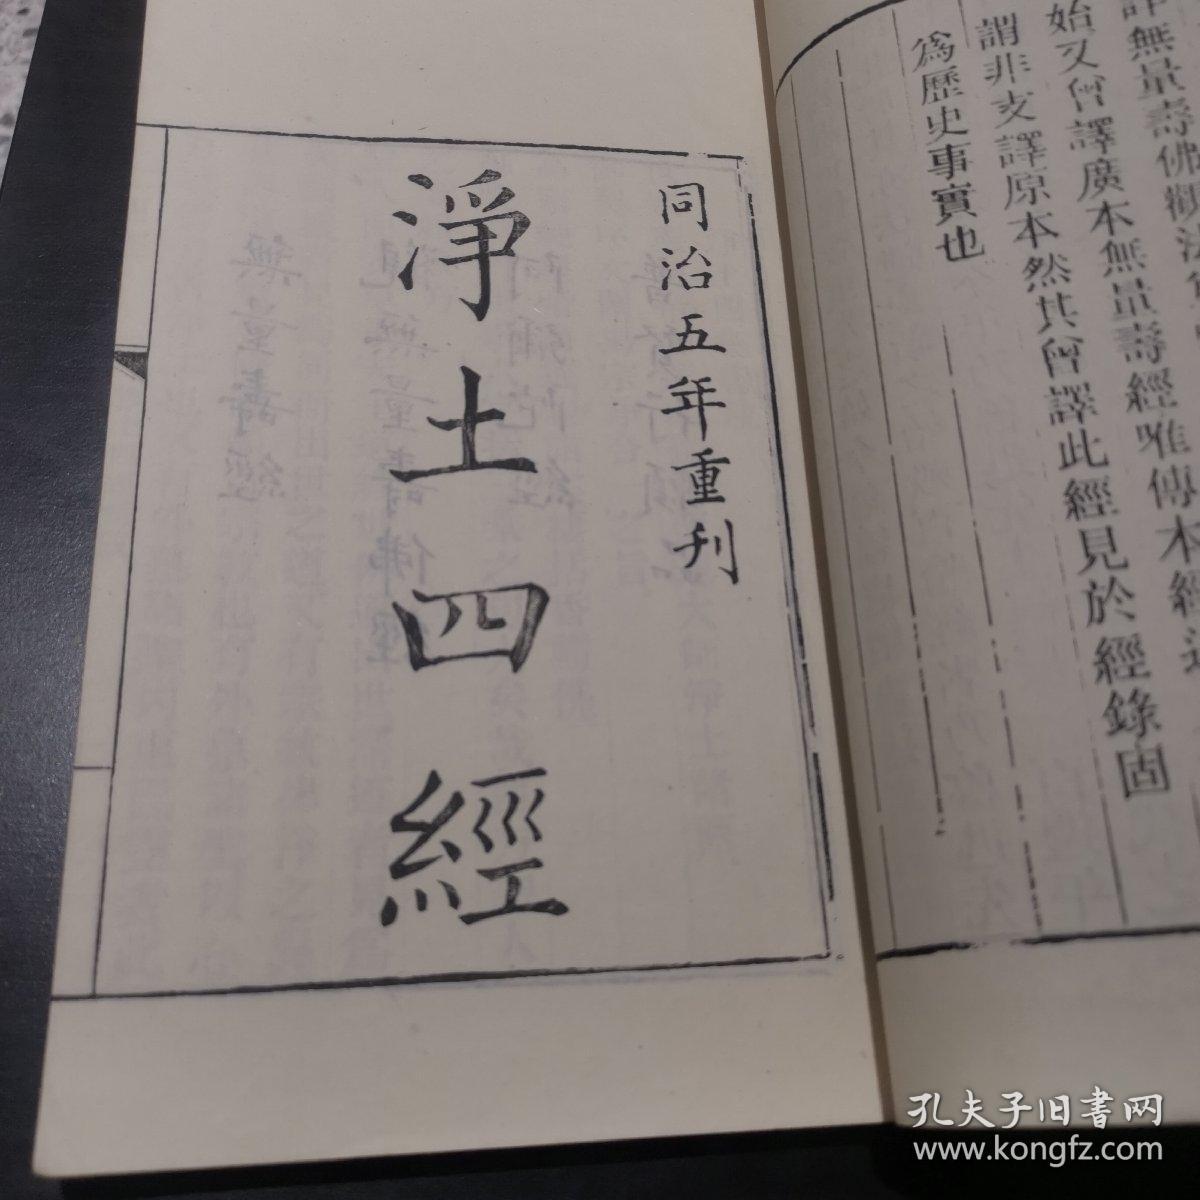 譯無量壽佛觀法
始又曾譯廣本無量壽經唯傳本經
謂非支譯原本然其曾譯此經見於經錄固
爲歷史事實也
同治五年重刊
淨土四經
孔夫子旧书网
www.kongfz.com